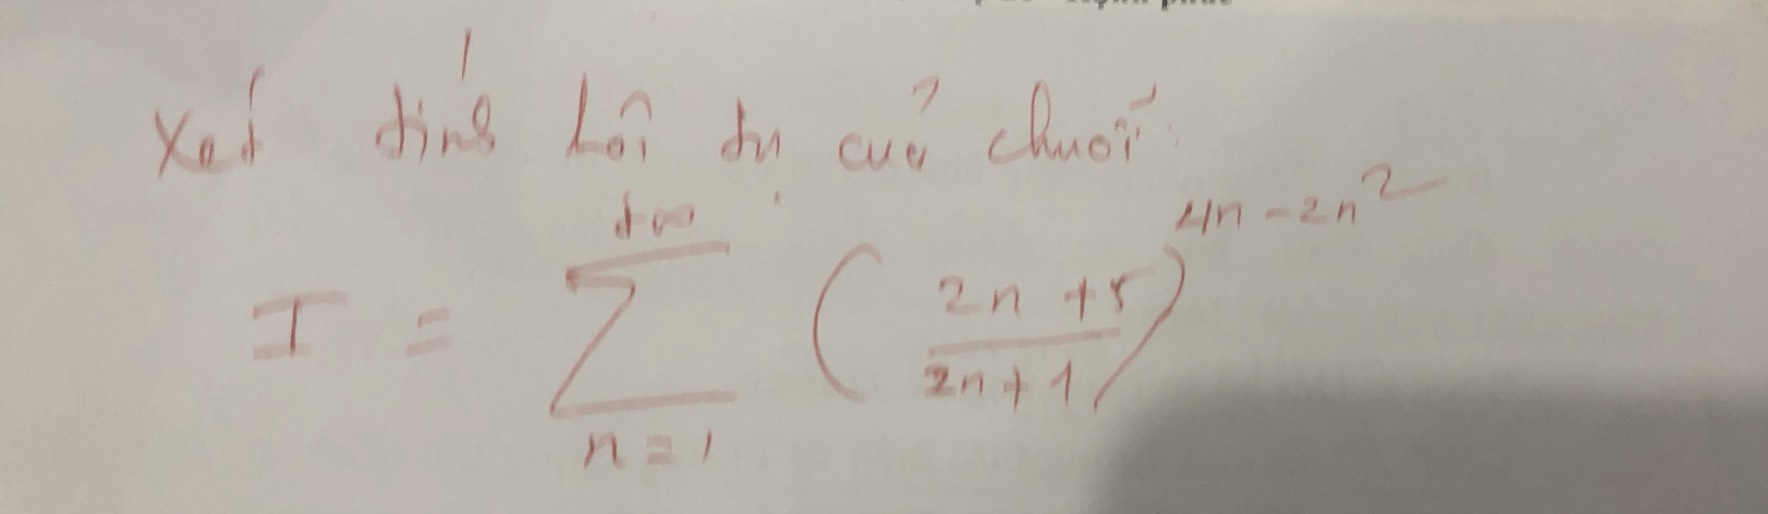 Xét tính hội tụ của chuỗi:
I = \sum_{n=1}^{+\infty} \left( \frac{2n+5}{2n+1} \right)^{4n-2n^2}